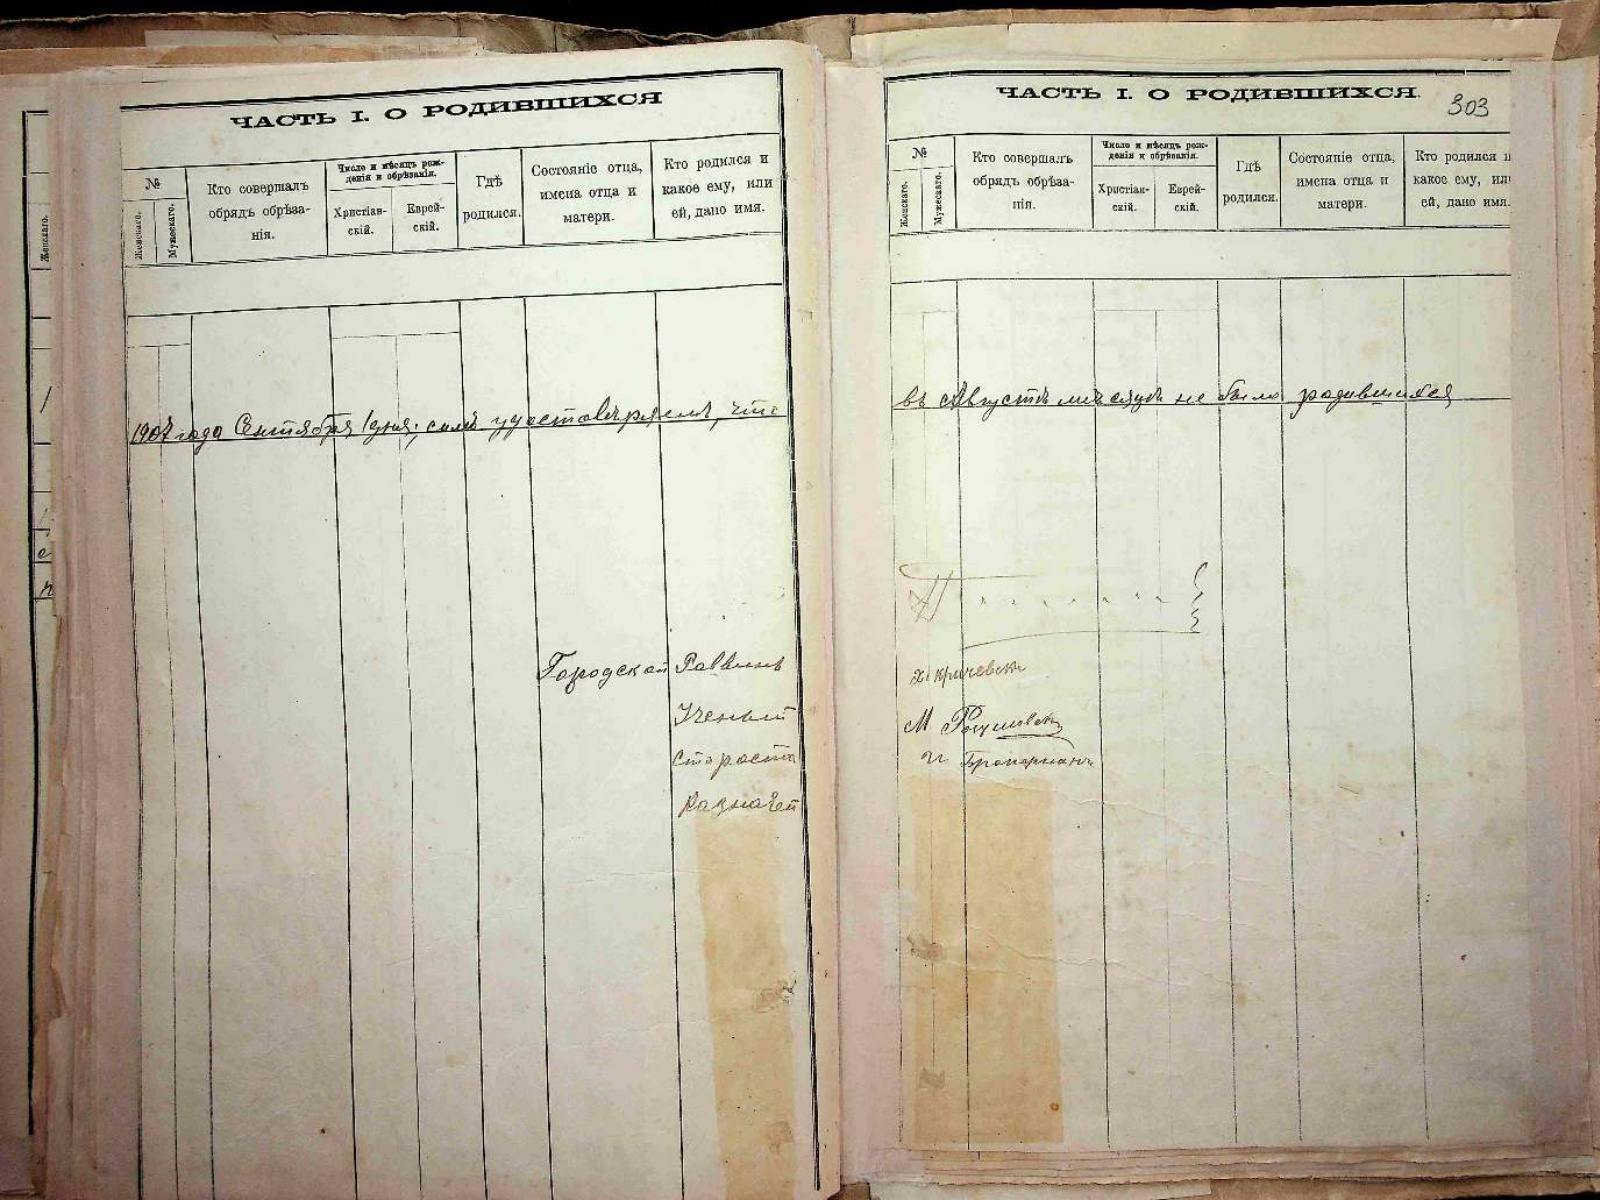 ЧАСТЬ I. О РОДИВШИХСЯ
№
Женскаго.
Мужескаго.
Кто совершалъ
обрядъ обрѣза-
нія.
Число и мѣсяцъ рож-
денія и обрѣзанія.
Христіан-
скій.
Еврей-
скій.
Гдѣ
родился.
Состояніе отца,
имена отца и
матери.
Кто родился и
какое ему, или
ей, дано имя.
1907 года Сентября 1 дня, симъ удостовѣряемъ, что
Городской Раввинъ
Ученый
Староста
Казначей
ЧАСТЬ I. О РОДИВШИХСЯ.
303
№
Женскаго.
Мужескаго.
Кто совершалъ
обрядъ обрѣза-
нія.
Число и мѣсяцъ рож-
денія и обрѣзанія.
Христіан-
скій.
Еврей-
скій.
Гдѣ
родился.
Состояніе отца,
имена отца и
матери.
Кто родился и
какое ему, или
ей, дано имя.
въ Августѣ мѣсяцѣ не было родившихся
Х. Кричевск
М
Женскаго.